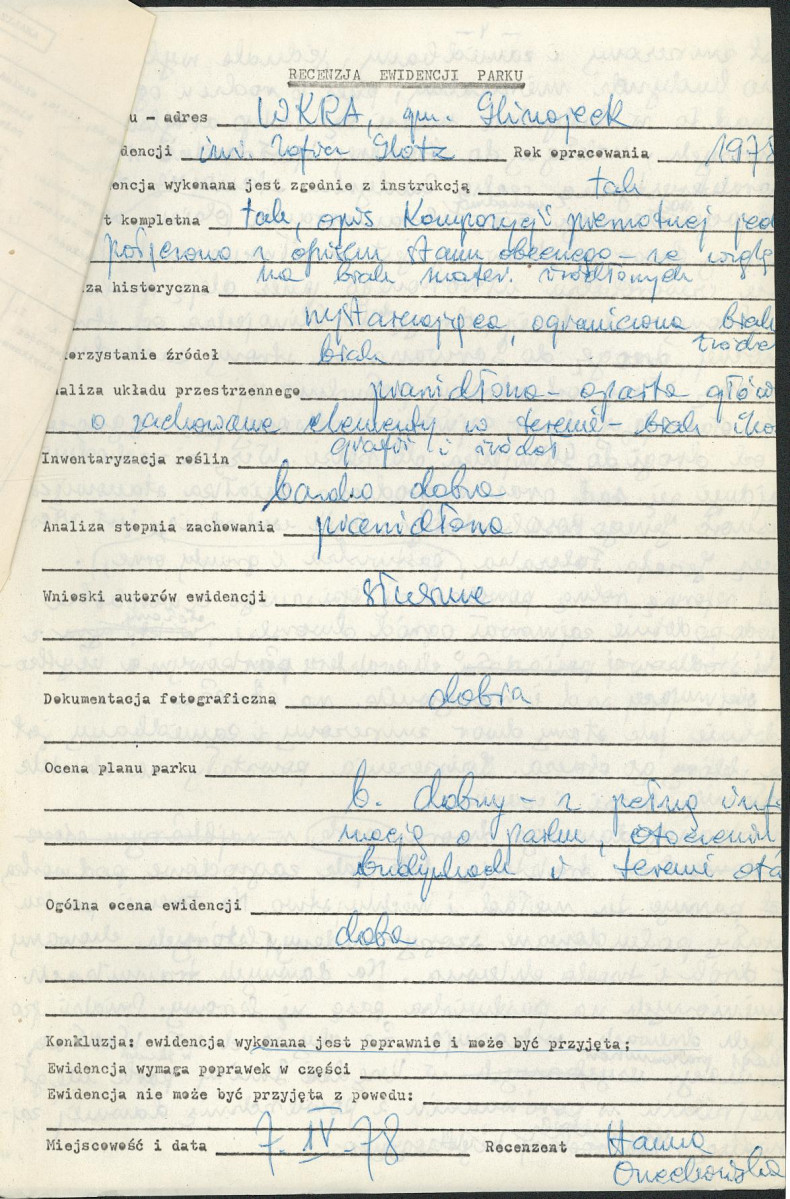 RECENZJA EWIDENCJI PARKU
u - adres WKRA, gm. Glinojeck
dencji inż. Zofia Glotz Rok opracowania 1978
encja wykonana jest zgodnie z instrukcją tak
t kompletna tak, opis kompozycji pierwotnej jed
połączono z opisem stanu obecnego - ze wzglę
na brak mater. źródłowych
iza historyczna
wystarczająca, ograniczona brak
źródeł
orzystanie źródeł brak
naliza układu przestrzennego prawidłowa - oparta głów
o zachowane elementy w terenie - brak iko
grafii i źródeł
Inwentaryzacja roślin
bardzo dobra
Analiza stopnia zachowania prawidłowa
Wnioski autorów ewidencji słuszne
Dokumentacja fotograficzna dobra
Ocena planu parku
b. dobry - z pełną infor
macją o parku, otoczeniu,
budynkach i terenie ota
Ogólna ocena ewidencji
dobra
Konkluzja: ewidencja wykonana jest poprawnie i może być przyjęta;
Ewidencja wymaga poprawek w części
Ewidencja nie może być przyjęta z powodu:
Miejscowość i data 7. IV. 78 Recenzent Hanna